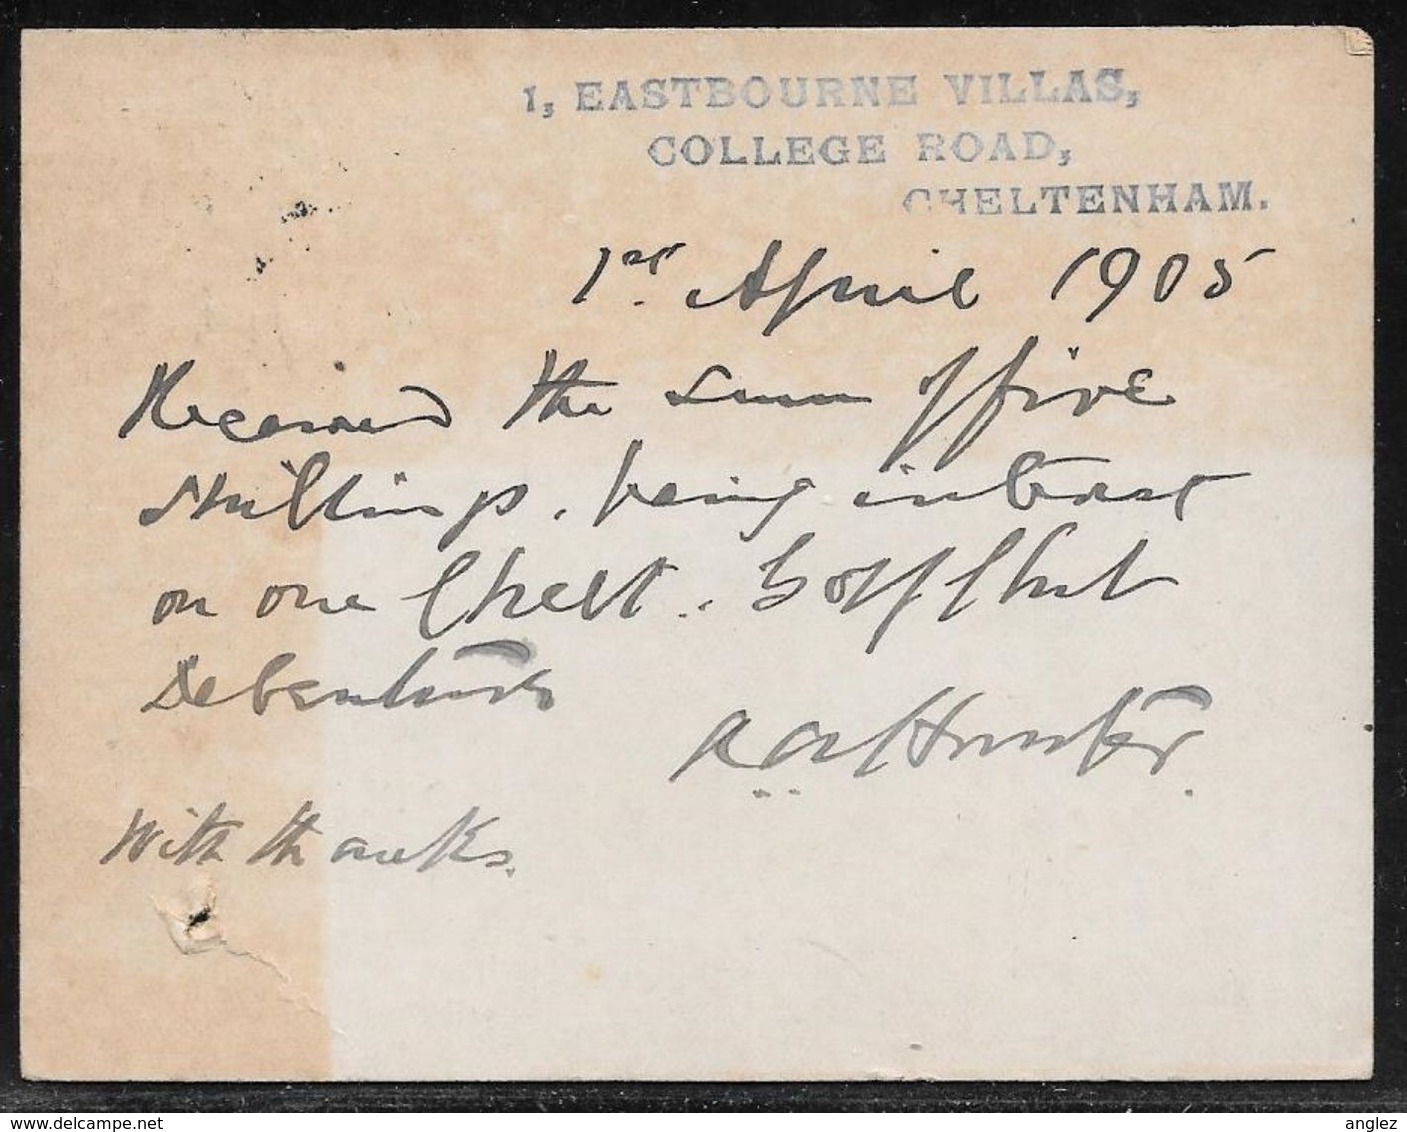 1, EASTBOURNE VILLAS,
COLLEGE ROAD,
CHELTENHAM.
1st April 1905
Received the sum of five
shillings, being interest
on one Chelt. Golf Club
Debenture
Hunter
With thanks.
www.delcampe.net
anglez